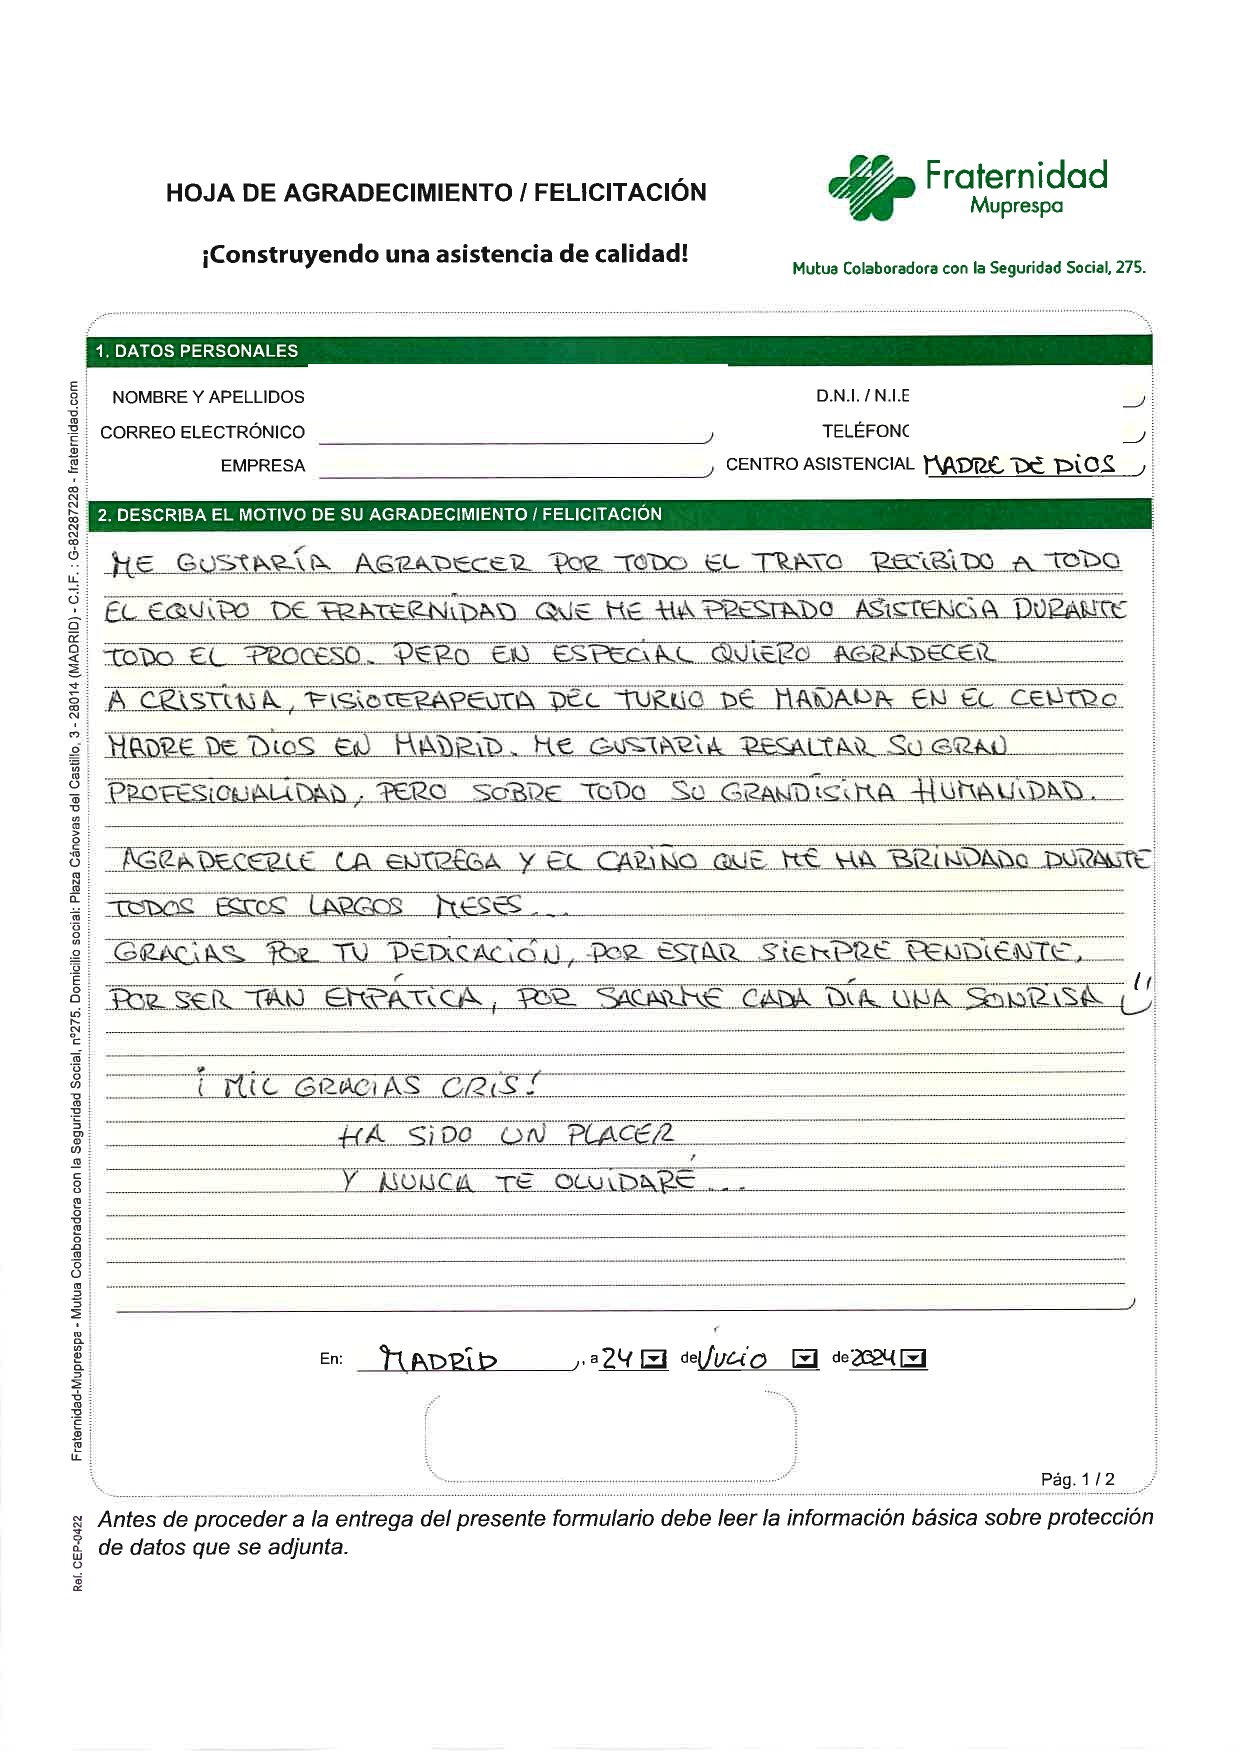 HOJA DE AGRADECIMIENTO / FELICITACIÓN
¡Construyendo una asistencia de calidad!
Fraternidad
Muprespa
Mutua Colaboradora con la Seguridad Social, 275.
1. DATOS PERSONALES
NOMBRE Y APELLIDOS
D.N.I. / N.I.E
CORREO ELECTRÓNICO
TELÉFONO
EMPRESA
CENTRO ASISTENCIAL MADRE DE DIOS
2. DESCRIBA EL MOTIVO DE SU AGRADECIMIENTO / FELICITACIÓN
ME GUSTARÍA AGRADECER POR TODO EL TRATO RECIBIDO A TODO
EL EQUIPO DE FRATERNIDAD QUE ME HA PRESTADO ASISTENCIA DURANTE
TODO EL PROCESO. PERO EN ESPECIAL QUIERO AGRADECER
A CRISTINA, FISIOTERAPEUTA DEL TURNO DE MAÑANA EN EL CENTRO
MADRE DE DIOS EN MADRID. ME GUSTARIA RESALTAR SU GRAN
PROFESIONALIDAD, PERO SOBRE TODO SU GRANDÍSIMA HUMANIDAD.
AGRADECERLE LA ENTREGA Y EL CARIÑO QUE ME HA BRINDADO DURANTE
TODOS ESTOS LARGOS MESES...
GRACIAS POR TU DEDICACIÓN, POR ESTAR SIEMPRE PENDIENTE,
POR SER TAN EMPÁTICA, POR SACARME CADA DÍA UNA SONRISA
¡MIL GRACIAS CRIS!
HA SIDO UN PLACER
Y NUNCA TE OLVIDARÉ...
En: MADRID, a 24 de JULIO de 2024
Pág. 1 / 2
Antes de proceder a la entrega del presente formulario debe leer la información básica sobre protección
de datos que se adjunta.
Fraternidad-Muprespa - Mutua Colaboradora con la Seguridad Social, nº275. Domicilio social: Plaza Cánovas del Castillo, 3 - 28014 (MADRID) - C.I.F. : G-82287228 - fraternidad.com
Ref. CEP-0422